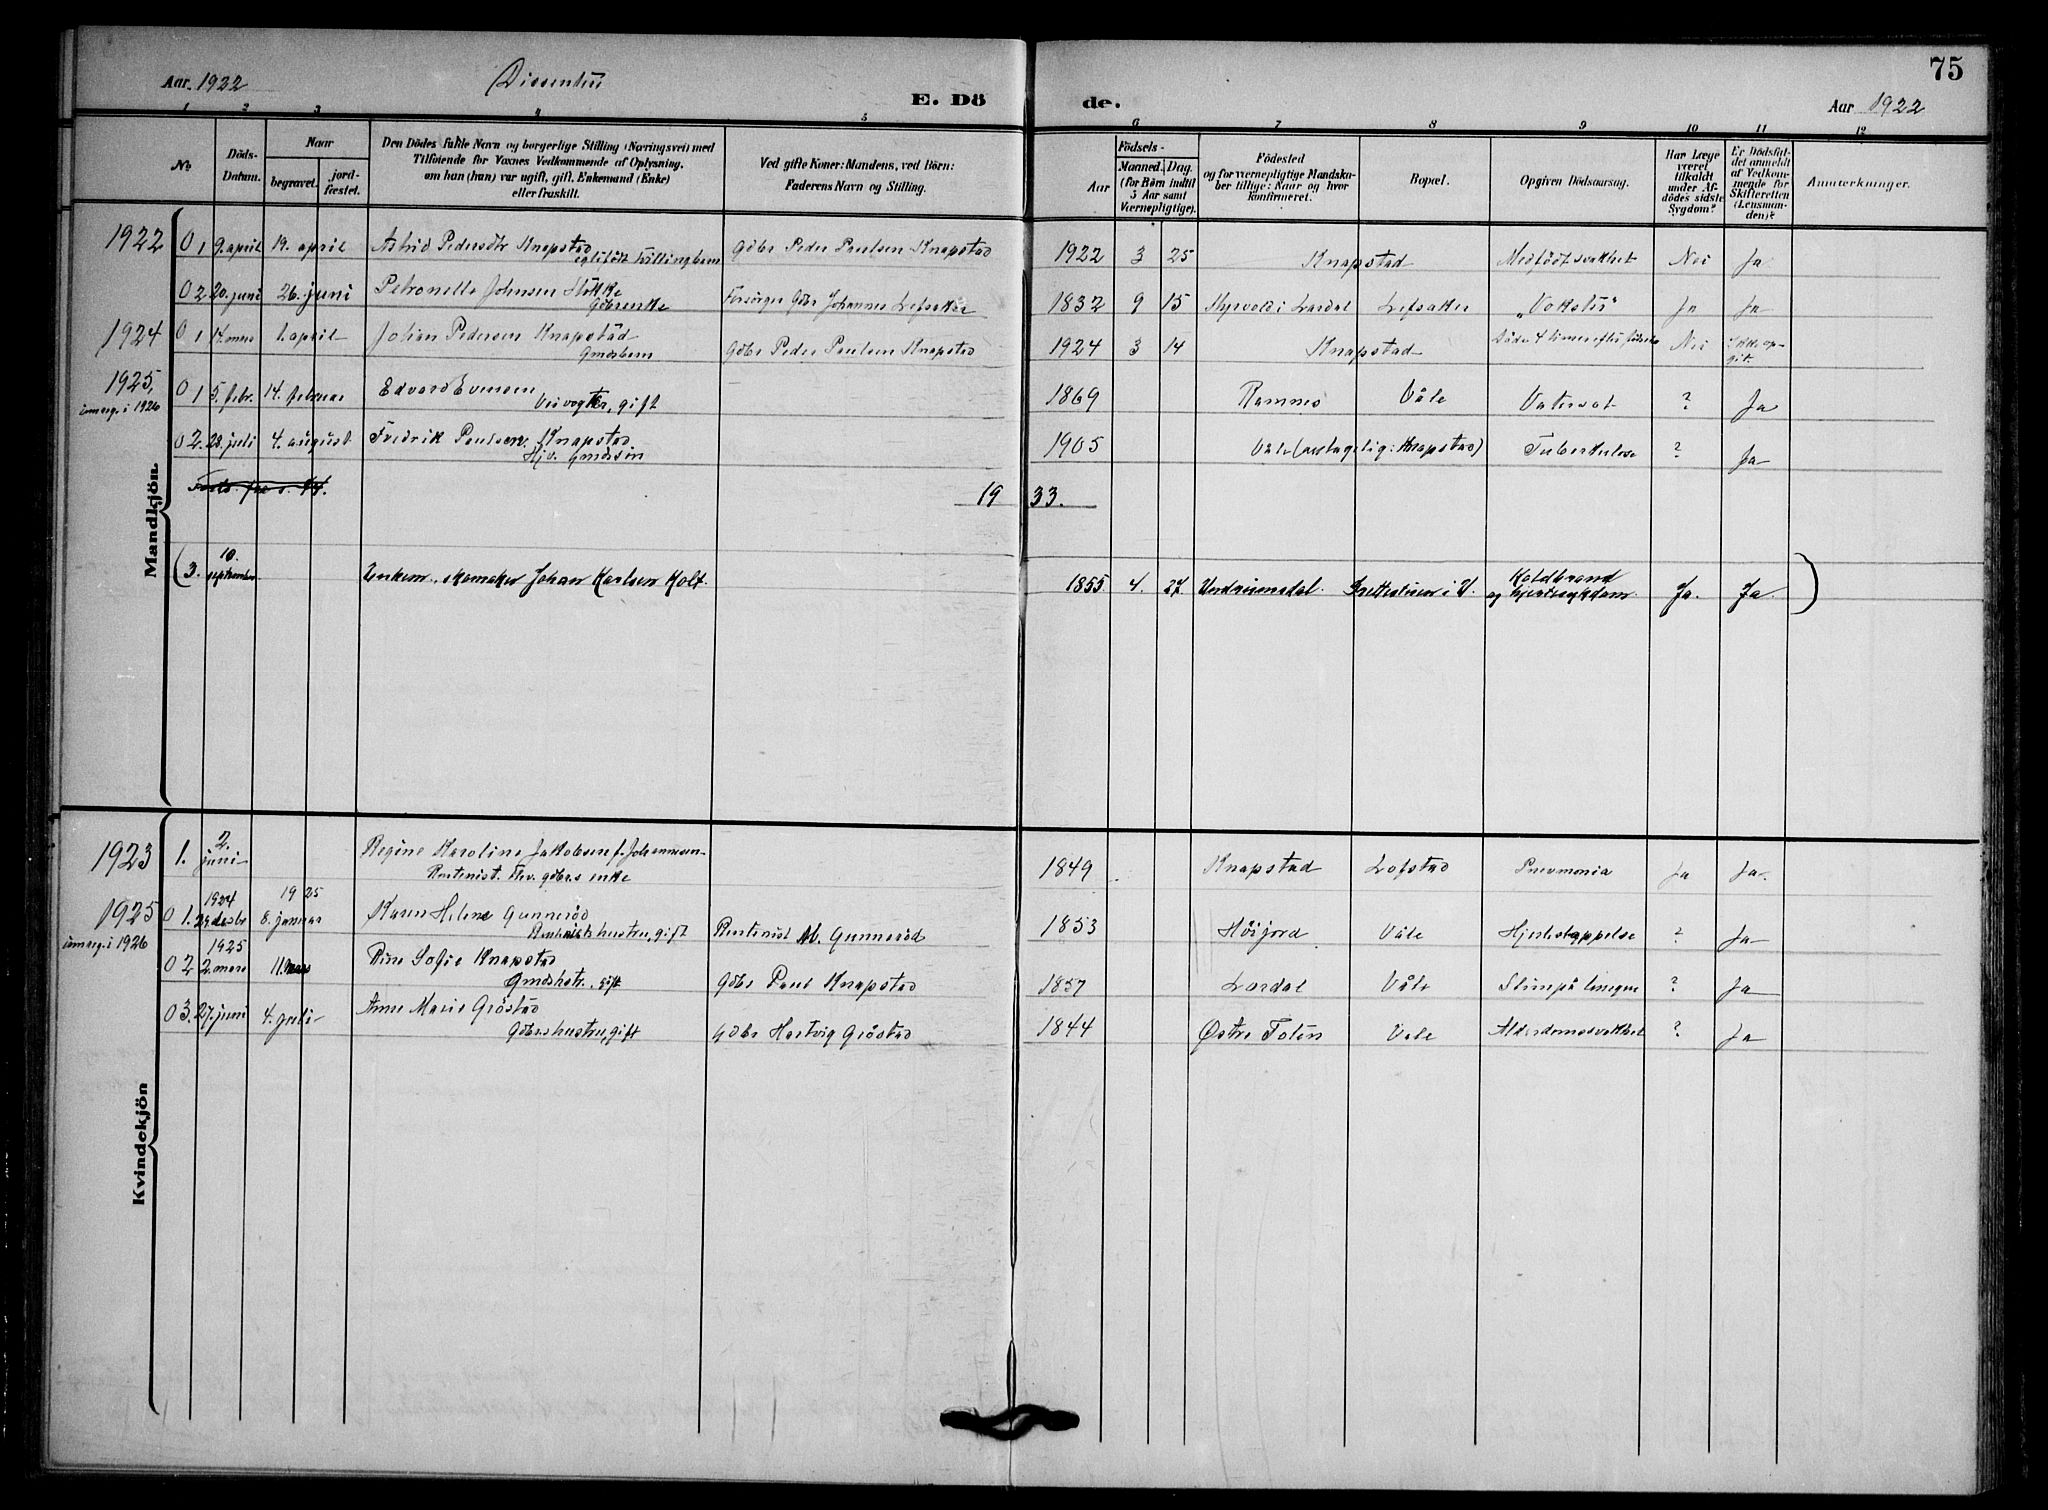 75
Aar. 1922 Dissentere E. Dö de. Aar 1922
1 2 3 4 5 6 7 8 9 10 11 12
No. Döds-Datum. Naar begravet. jord-fæstet.
Den Dödes fulde Navn og borgerlige Stilling (Næringsvei) med
Tilföiende for Voxnes Vedkommende af Oplysning,
om han (hun) var ugift, gift, Enkemand (Enke)
eller fraskilt.
Ved gifte Koner: Mandens, ved Börn:
Faderens Navn og Stilling.
Födsels-
Aar Maaned. Dag.
(for Børn indtil
5 Aar samt
Værnepligtige).
Födested
og for værnepligtige Mandska-
ber tillige: Naar og hvor
konfirmeret.
Bopæl.
Opgiven Dödsaarsag.
Har Læge
været
tilkaldt
under Af-
dödes sidste
Sygdom?
Er Dödsfal-
det anmeldt
af Vedkom-
mende for
Skifteretten
(Lensman-
den)?
Anmerkninger.
Mandkjön
1922 0 1 9. april 19. april Astrid Pedersdtr Knapstad
egtefödt tvillingbarn Gdbr Peder Paulsen Knapstad 1922 3 25 Knapstad Medfödt svakhet Nei Ja
0 2 20. juni 26. juni Petronelle Johnsen Stökke
Gdbrenke Forsörger Gdbr Johannes Lefsaker 1832 9 15 i Lardal Lefsaker Ja Ja
1924 0 1 14. mars 1. april Johan Pedersen Knapstad
Gmdsbarn Gdbr Peder Paulsen Knapstad 1924 3 14 Knapstad Döde 4 timer efter födselen Nei Ikke op-
git.
1925, 0 1 5. febr. 14. februar Edvard Evensen
innreg. i 1926 Veivogter, gift 1869 Ramnes Våle Vatersot ? Ja
0 2. 28. juli 4. august. Fredrik Paulsen Knapstad
Hjv. Gmdssön 1905 Våle (antagelig: Knapstad) Tuberkulose ? Ja
Forts. fra s. 19 33.
(3. 10.
september Enkem., skomaker Johan Karlsen Holt. 1855 4. 27 Undrumsdal. i V. Koldbrand
og hjertesykdom. Ja. Ja. )
Kvindekjön
1923 1. 2.
juni Regine Karoline Jakobsen f. Johannesen-
Rentenist. Fhv. gdbrs enke 1849 Knapstad Lofstad Pneumonia Ja Ja.
1924 19 25
1925 0 1. 29 desbr 8. januar Karen Helene Gunneröd
innreg. i 1926 Rentenists hustru, gift Rentenist M. Gunneröd 1853 Höijord Våle Hjertestoppelse ? Ja
1925
0 2 2. mars 11. mars Rine Sofie Knapstad
Gmdshstr., gift Gdbr Paul Knapstad 1857 Lardal Våle Slim på lungene ? Ja
0 3. 27. juni 4. juli Anne Marie Gröstad
Gdbrs hustru, gift Gdbr Hartvig Gröstad 1844 Østre Toten Våle Alderdomssvakhet ? Ja